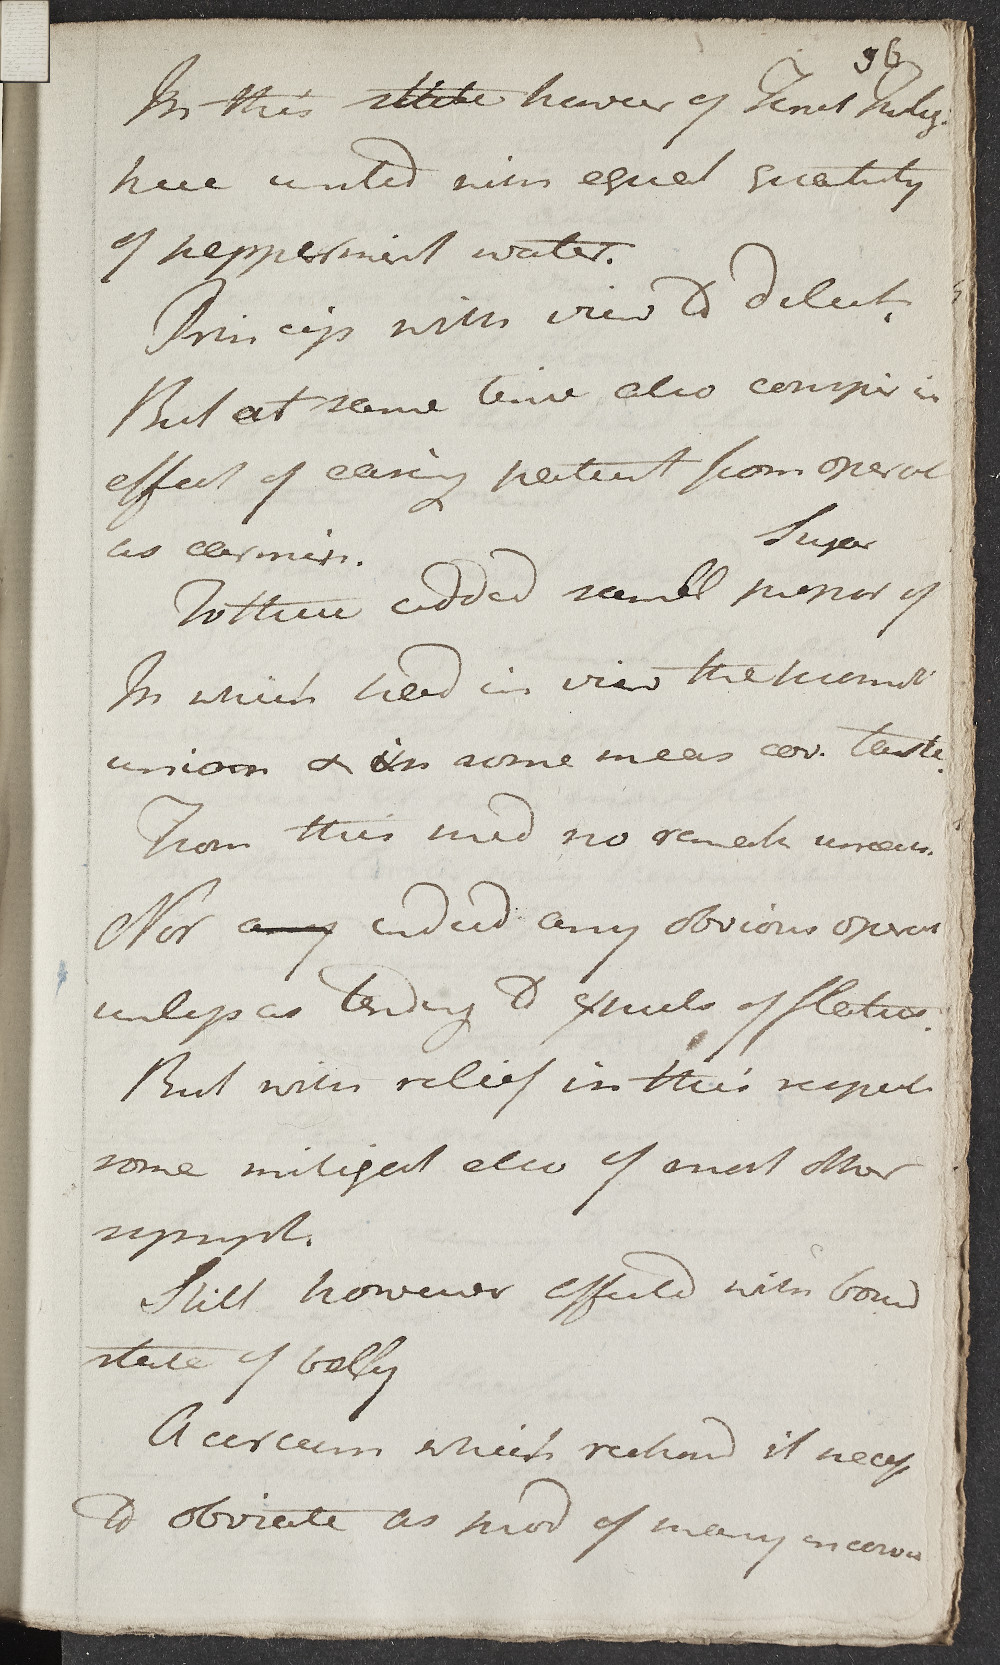 96
In this state however of Tinct Fulig:
here united with equal quantity
of peppermint water.
Princip with view to dilut.
But at same time also conspir in
effect of easing patient from operat
as carmin.
Sugar
To these added small propor of
In which had in view the promot
union & in some meas cov. taste.
From this med no remark
Nor any indeed any obvious operat
unless as tending to expuls of flatus.
But with relief in this respect
some mitigat also of most other
sympt.
Still however affected with bound
state of belly
A circum which reckond it necess
to obviate as prod of many inconv